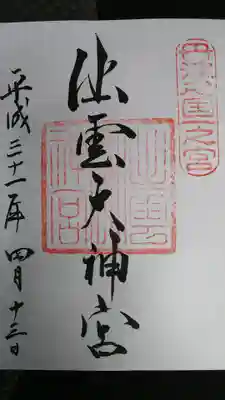 丹波國一之宮
出雲大神宮
出雲
神宮
平成三十一年四月十三日